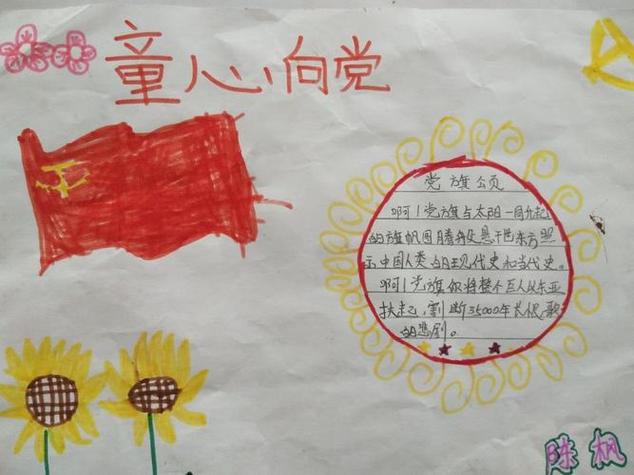 童心向党
党旗颂
啊！党旗与太阳一同升起
的旗帆
示中国人类的现代史和当代史。
啊！党旗你将整个巨人从东亚
扶起，割断35000年长恨歌
的悲剧。
陈枫